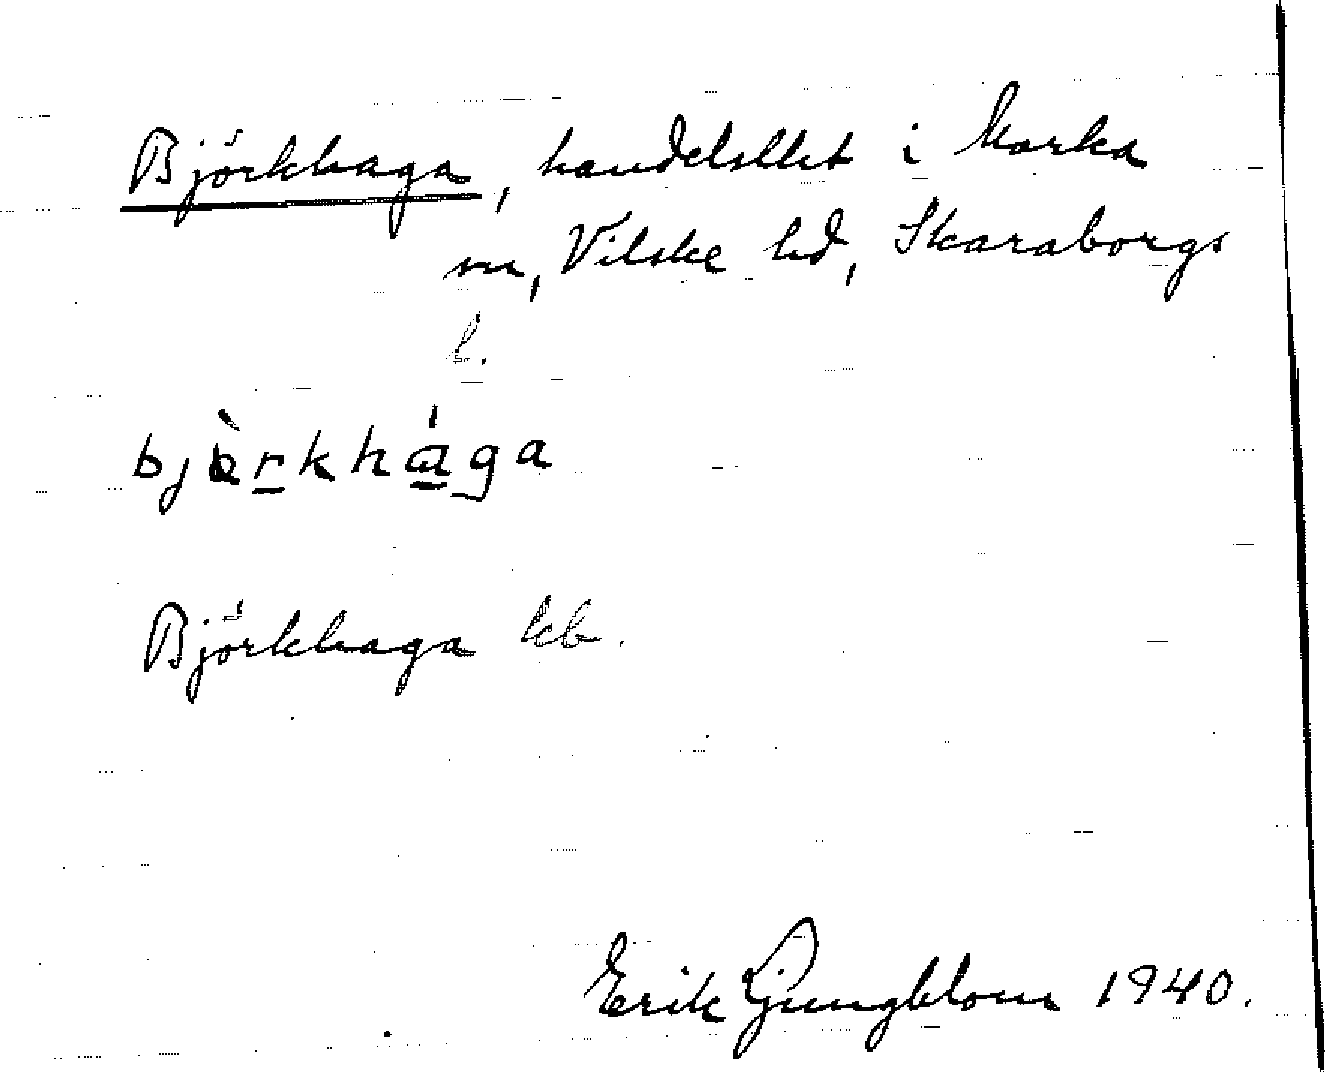 Björkhaga, handelsllet i Marka
sn, Vilske hd, Skaraborgs
l.
björ̲khá̲ga
Björkhaga kb.
Erik Ljungblom 1940.